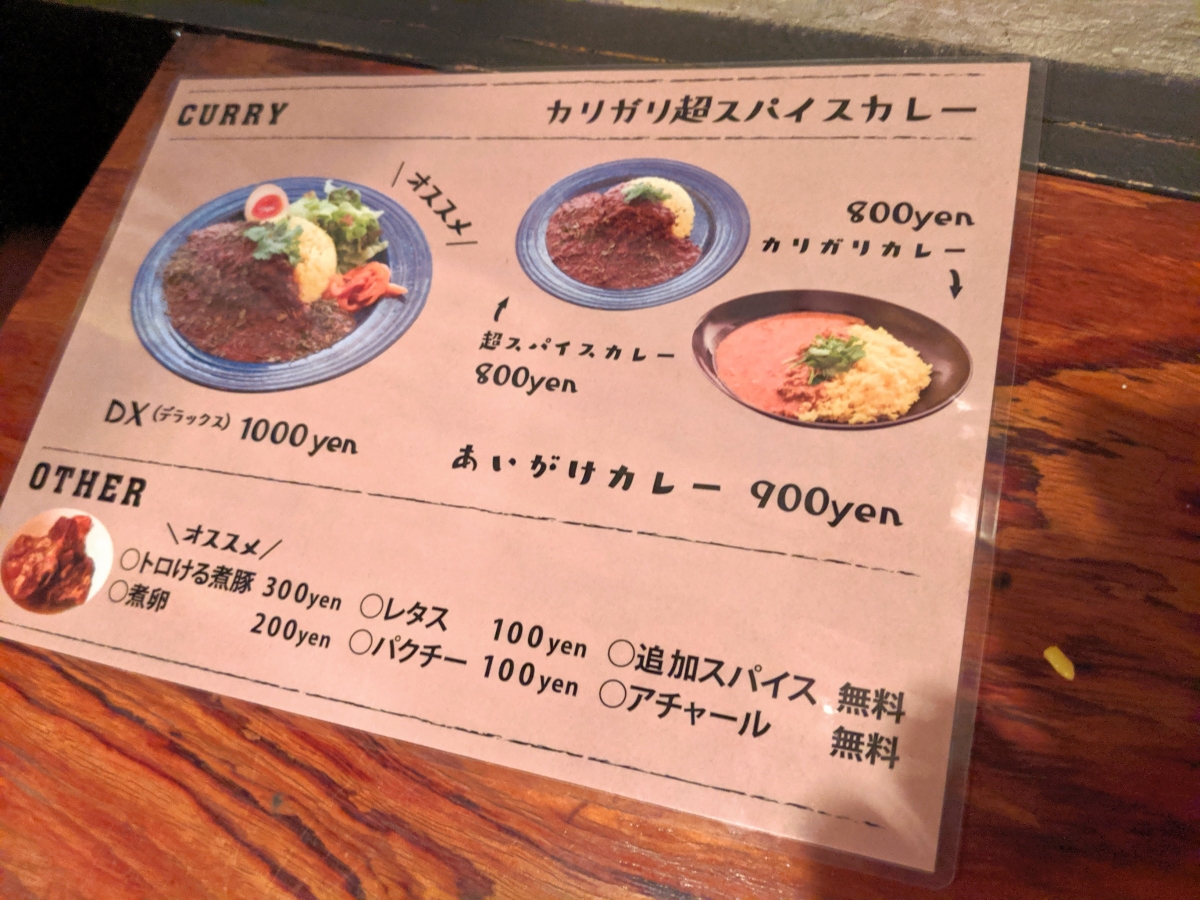 CURRY カリガリ超スパイスカレー
\オススメ/
800yen
カリガリカレー
超スパイスカレー
800yen
DX(デラックス) 1000yen
あいがけカレー 900yen
OTHER
\オススメ/
○トロける煮豚 300yen ○レタス 100yen ○追加スパイス 無料
○煮卵 200yen ○パクチー 100yen ○アチャール 無料